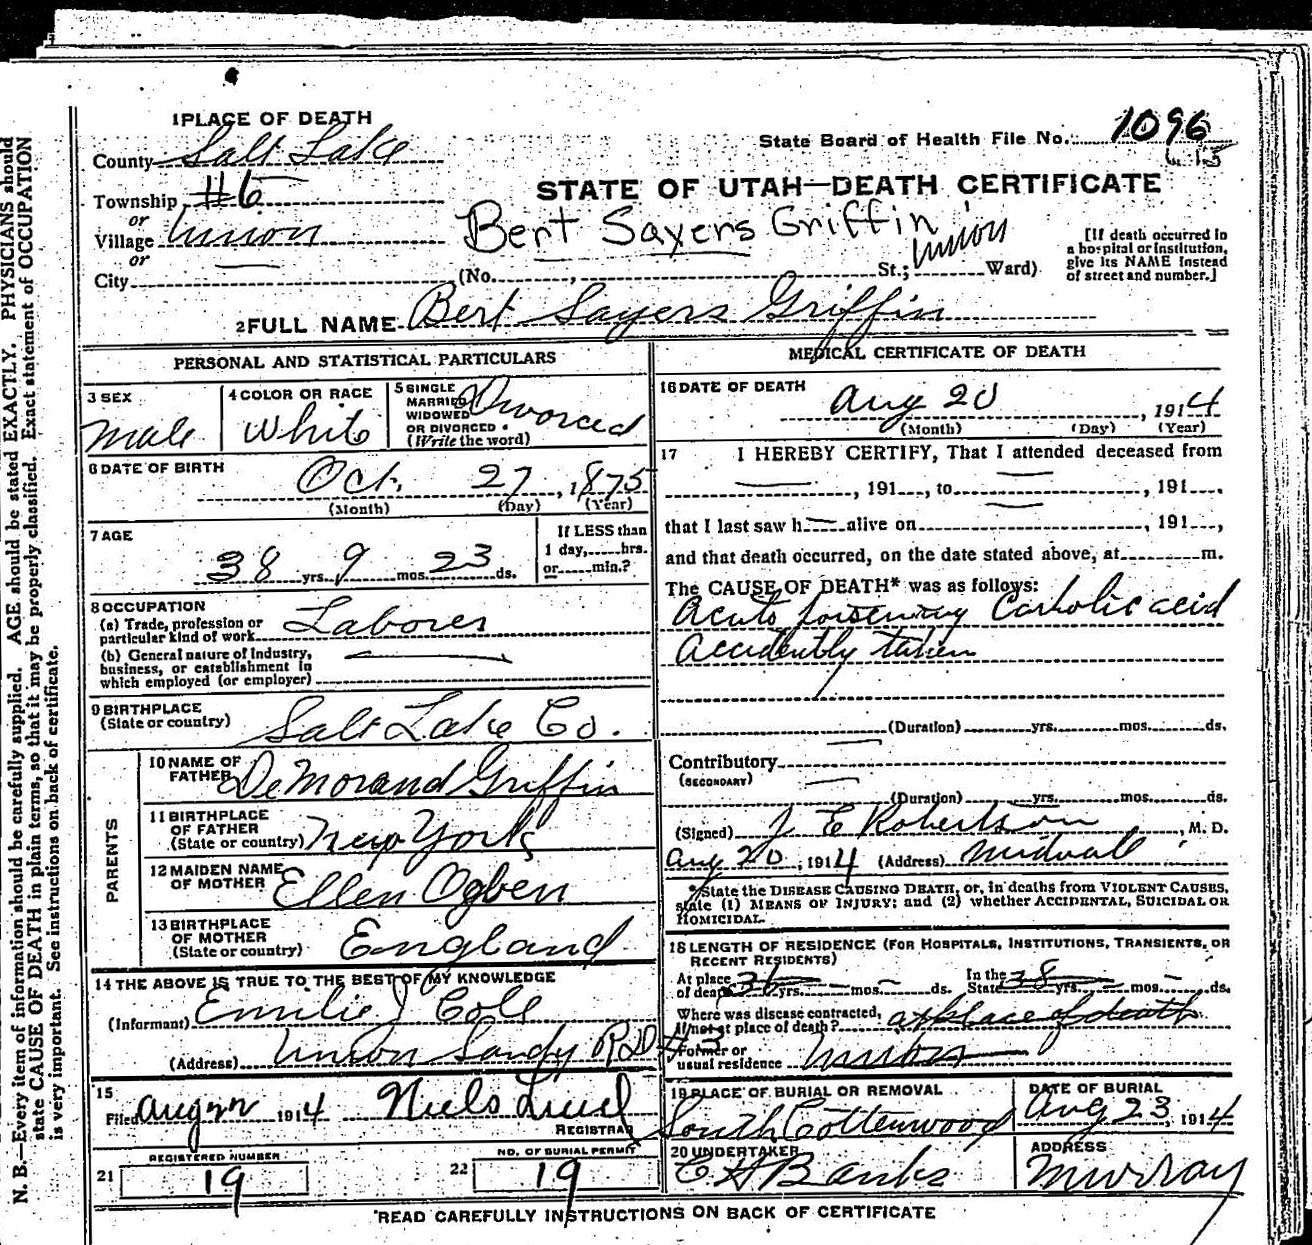 1 PLACE OF DEATH
County Salt Lake
State Board of Health File No. 1096
Township #6
STATE OF UTAH—DEATH CERTIFICATE
or
Village Union
Bert Sayers Griffin
[If death occurred in a hospital or institution, give its NAME instead of street and number.]
or
City
(No. , St.; Union Ward)
2 FULL NAME Bert Sayers Griffin
PERSONAL AND STATISTICAL PARTICULARS
3 SEX
Male
4 COLOR OR RACE
White
5 SINGLE
MARRIED
WIDOWED
OR DIVORCED
(Write the word)
Divorced
6 DATE OF BIRTH
Oct. 27, 1875
(Month) (Day) (Year)
7 AGE
38 yrs. 9 mos. 23 ds.
If LESS than
1 day, hrs.
or min.?
8 OCCUPATION
(a) Trade, profession or
particular kind of work Laborer
(b) General nature of Industry,
business, or establishment in
which employed (or employer)
9 BIRTHPLACE
(State or country) Salt Lake Co.
PARENTS
10 NAME OF
FATHER DeMorand Griffin
11 BIRTHPLACE
OF FATHER
(State or country) New York
12 MAIDEN NAME
OF MOTHER Ellen Ogben
13 BIRTHPLACE
OF MOTHER
(State or country) England
14 THE ABOVE IS TRUE TO THE BEST OF MY KNOWLEDGE
(Informant) Emilie J Cole
(Address) Union Sandy RD #3
15
Filed Aug 22 1914 Niels Lind
REGISTRAR
REGISTERED NUMBER
21 19
NO. OF BURIAL PERMIT
22 19
MEDICAL CERTIFICATE OF DEATH
16 DATE OF DEATH
Aug 20, 1914
(Month) (Day) (Year)
17 I HEREBY CERTIFY, That I attended deceased from
, 191 , to , 191 .
that I last saw h alive on , 191 ,
and that death occurred, on the date stated above, at m.
The CAUSE OF DEATH* was as follows:
Acute poisening Carbolic acid
Accidently taken
(Duration) yrs. mos. ds.
Contributory
(SECONDARY)
(Duration) yrs. mos. ds.
(Signed) J E Robertson, M. D.
Aug 20, 1914 (Address) Midvale
*State the DISEASE CAUSING DEATH, or, in deaths from VIOLENT CAUSES,
state (1) MEANS OF INJURY; and (2) whether ACCIDENTAL, SUICIDAL OR
HOMICIDAL.
18 LENGTH OF RESIDENCE (FOR HOSPITALS, INSTITUTIONS, TRANSIENTS, OR
RECENT RESIDENTS)
At place of death 36 yrs. mos. ds. In the State 38 yrs. mos. ds.
Where was disease contracted,
if not at place of death? at place of death
Former or
usual residence Union
19 PLACE OF BURIAL OR REMOVAL
South Cottonwood
DATE OF BURIAL
Aug 23, 1914
20 UNDERTAKER
C H Banks
ADDRESS
Murray
*READ CAREFULLY INSTRUCTIONS ON BACK OF CERTIFICATE
N. B.—Every item of information should be carefully supplied. AGE should be stated EXACTLY. PHYSICIANS should
state CAUSE OF DEATH in plain terms, so that it may be properly classified. Exact statement of OCCUPATION
is very important. See instructions on back of certificate.